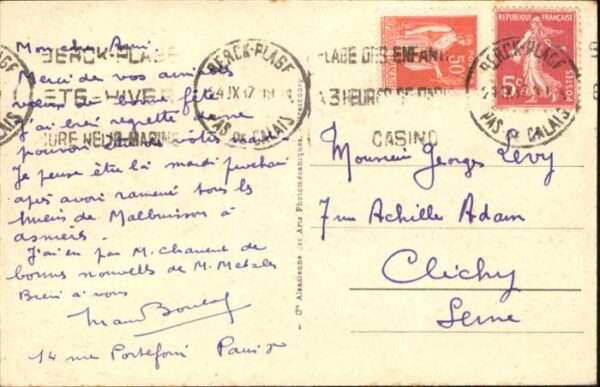 Mon cher Ami
Merci de vos amicales
vœux de bonne fête
j'ai bien regretté de ne
pouvoir
Je pense être là mardi prochain
après avoir ramené tous les
miens de Malbuisson à
Asnières.
J'ai eu par M. Chauvet de
bonnes nouvelles de M.
Bien à vous
14 rue Portefoin Paris 3e
BERCK-PLAGE
ETE-HIVER
CURE NEURO-MARINE
BERCK-PLAGE
PAS DE CALAIS
PLAGE DES ENFANTS
3 HEURES DE PARIS
CASINO
50c
REPUBLIQUE FRANÇAISE
5c
POSTES
BERCK-PLAGE
PAS DE CALAIS
Cie Alsacienne des Arts Photomécaniques, Strasbourg
Monsieur Georges Levy
7 rue Achille Adam
Clichy
Seine